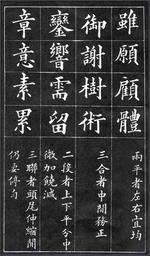 雖願顧體
兩平者左右宜均
御謝樹術
三合者中間務正
鑾響需留
二段者上下平分中
微加饒減
章意素累
三聯者頭尾伸縮間
仍要停勻